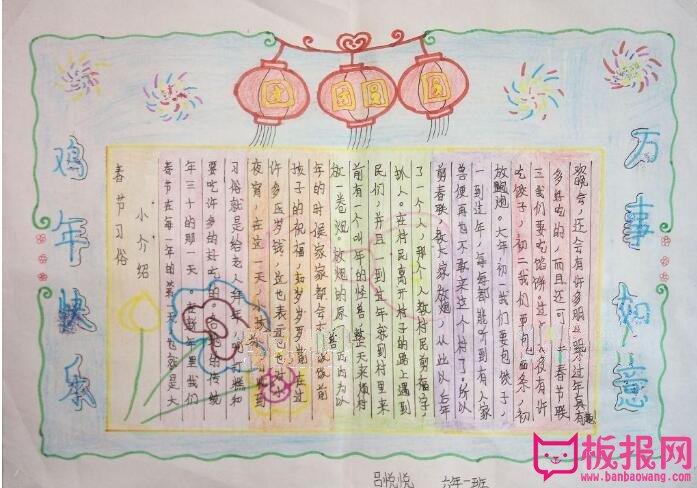 团团圆圆
鸡年快乐
万事如意
春节习俗
小介绍
春节在每一年的第一天也就是大
年三十的那一天。在新年里我们
要吃许多的好吃的。各地的传统
习俗就是给老人拜年
夜宵,在这一天,小孩到
许多压岁钱,这也表
孩子的祝福,过
年的时候家家都会前
放一卷炮。放炮的原因为以
前有一个叫年的怪兽整天来烦村
民们,并且一到过年就到村里来
抓人。在村民离开村子的路上遇到
了一个人,那个人教村民剪福字
剪春联,教大家放炮,从此以后年
兽便再也不敢来这个村了,所以
一到过年,每每都能听到有人家
放鞭炮。大年初一我们要包饺子,
吃饺子,初二我们要面条,初
三我们要吃馅饼。过有许
多好吃的,而且还可春节联
欢晚会,还会有许多朋过年真有趣
吕悦悦 六年一班
板报网
www.banbaowang.com